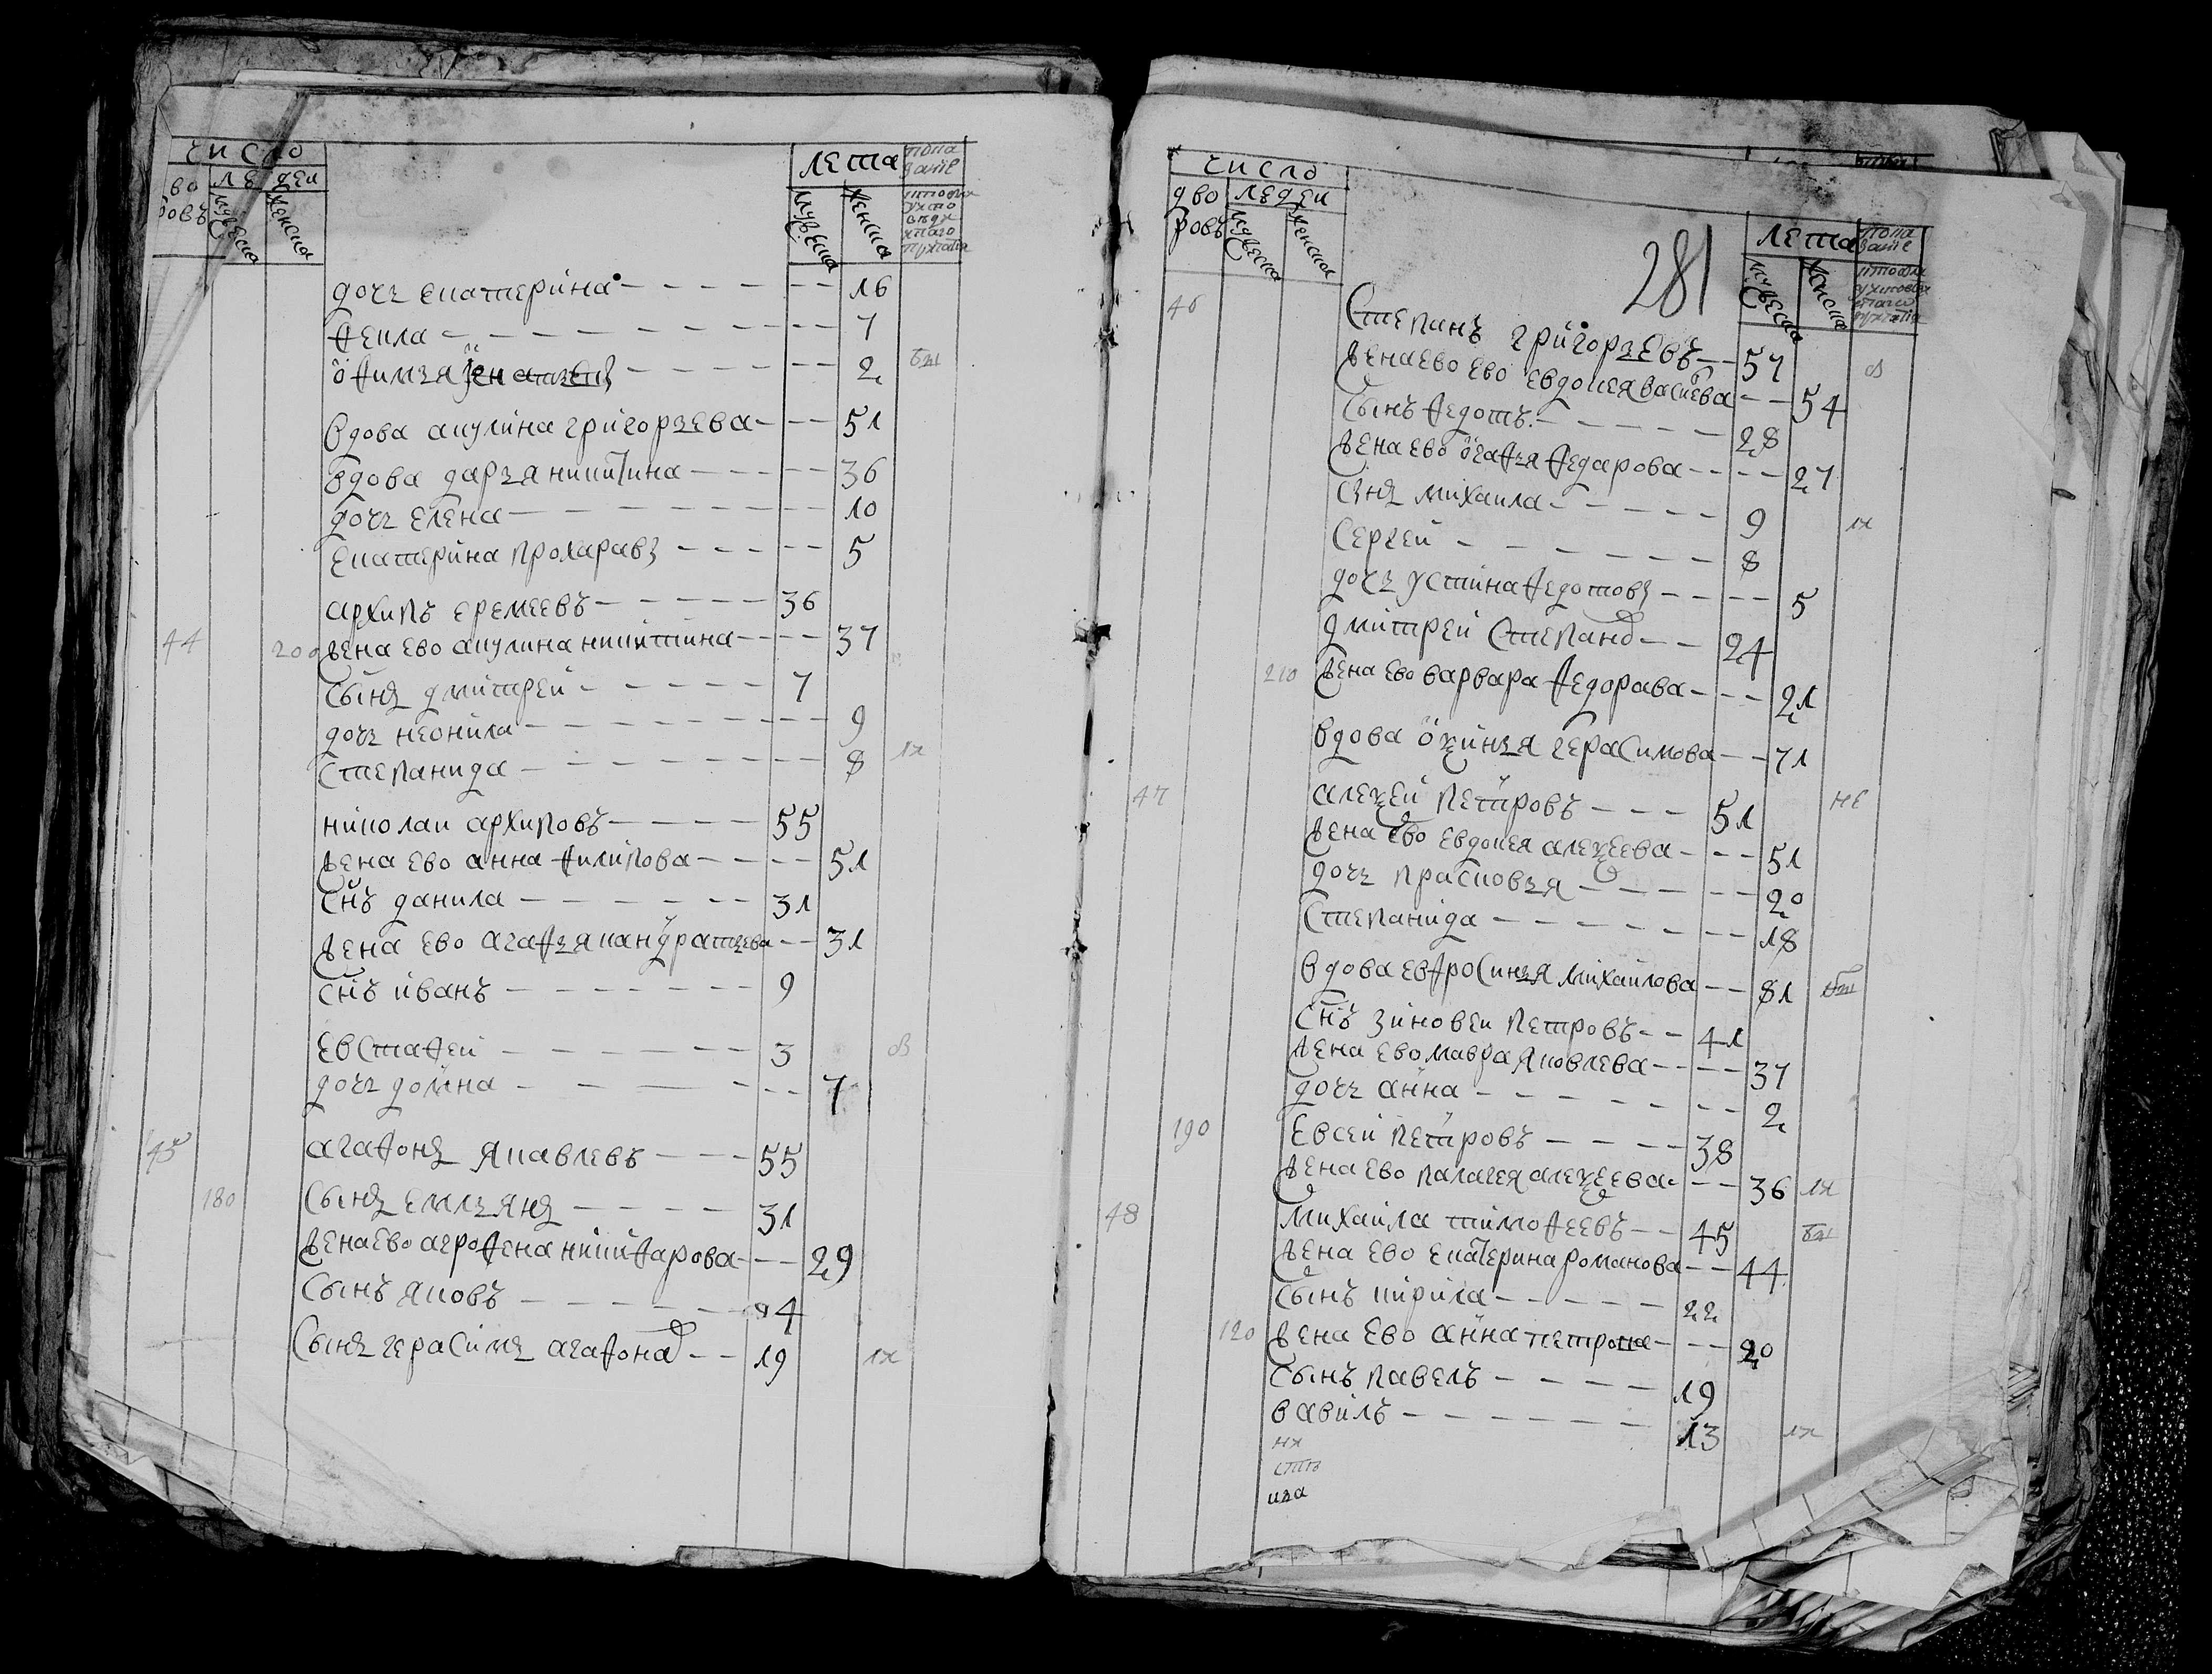 число
лета
людей
дворовъ
мужеска
женска
дочь екатерина 16
фекла 7
офимья 2
вдова акулина григорьева 51
вдова дарья никитина 36
дочь елена 10
екатерина прохоравы 5
архипъ еремеевъ 36
44 200 жена ево акулина никитина 37
сынъ дмитрей 7
дочь неонила 9
степанида 8
николаи архиповъ 55
жена ево анна филипова 51
снъ данила 31
жена ево агафья кандратьева 31
снъ иванъ 9
евстафей 3
дочь домна 7
45 агафонъ якавлевъ 55
180 сынъ емльянъ 31
жена ево агрофена никифарова 29
сынъ яковъ 4
сынъ герасимъ агафонов 19
число
дворовъ
людей
мужеска
женска
281
лета
мужеска
женска
46 степанъ григорьевъ 57
жена ево ево евдокея васильева 54
сынъ федотъ 28
жена ево огафья федарова 27
снъ михаила 9
сергей 8
дочь устина федотовы 5
дмитрей степанов 24
210 жена ево варвара федорава 21
вдова оксинья герасимова 71
47 алексей петровъ 51 не
жена ево евдокея алексеева 51
дочь прасковья 20
степанида 18
вдова евфросинья михаилова 81
снъ зиновеи петровъ 41
жена ево мавра яковлева 37
дочь анна 2
190 евсеи петровъ 38
жена ево палагея алексеева 36
48 михаила тимофеевъ 45
жена ево екатерина романова 44
сынъ кирила 22
120 жена ево анна петрова 20
сынъ павелъ 19
вавилъ 13